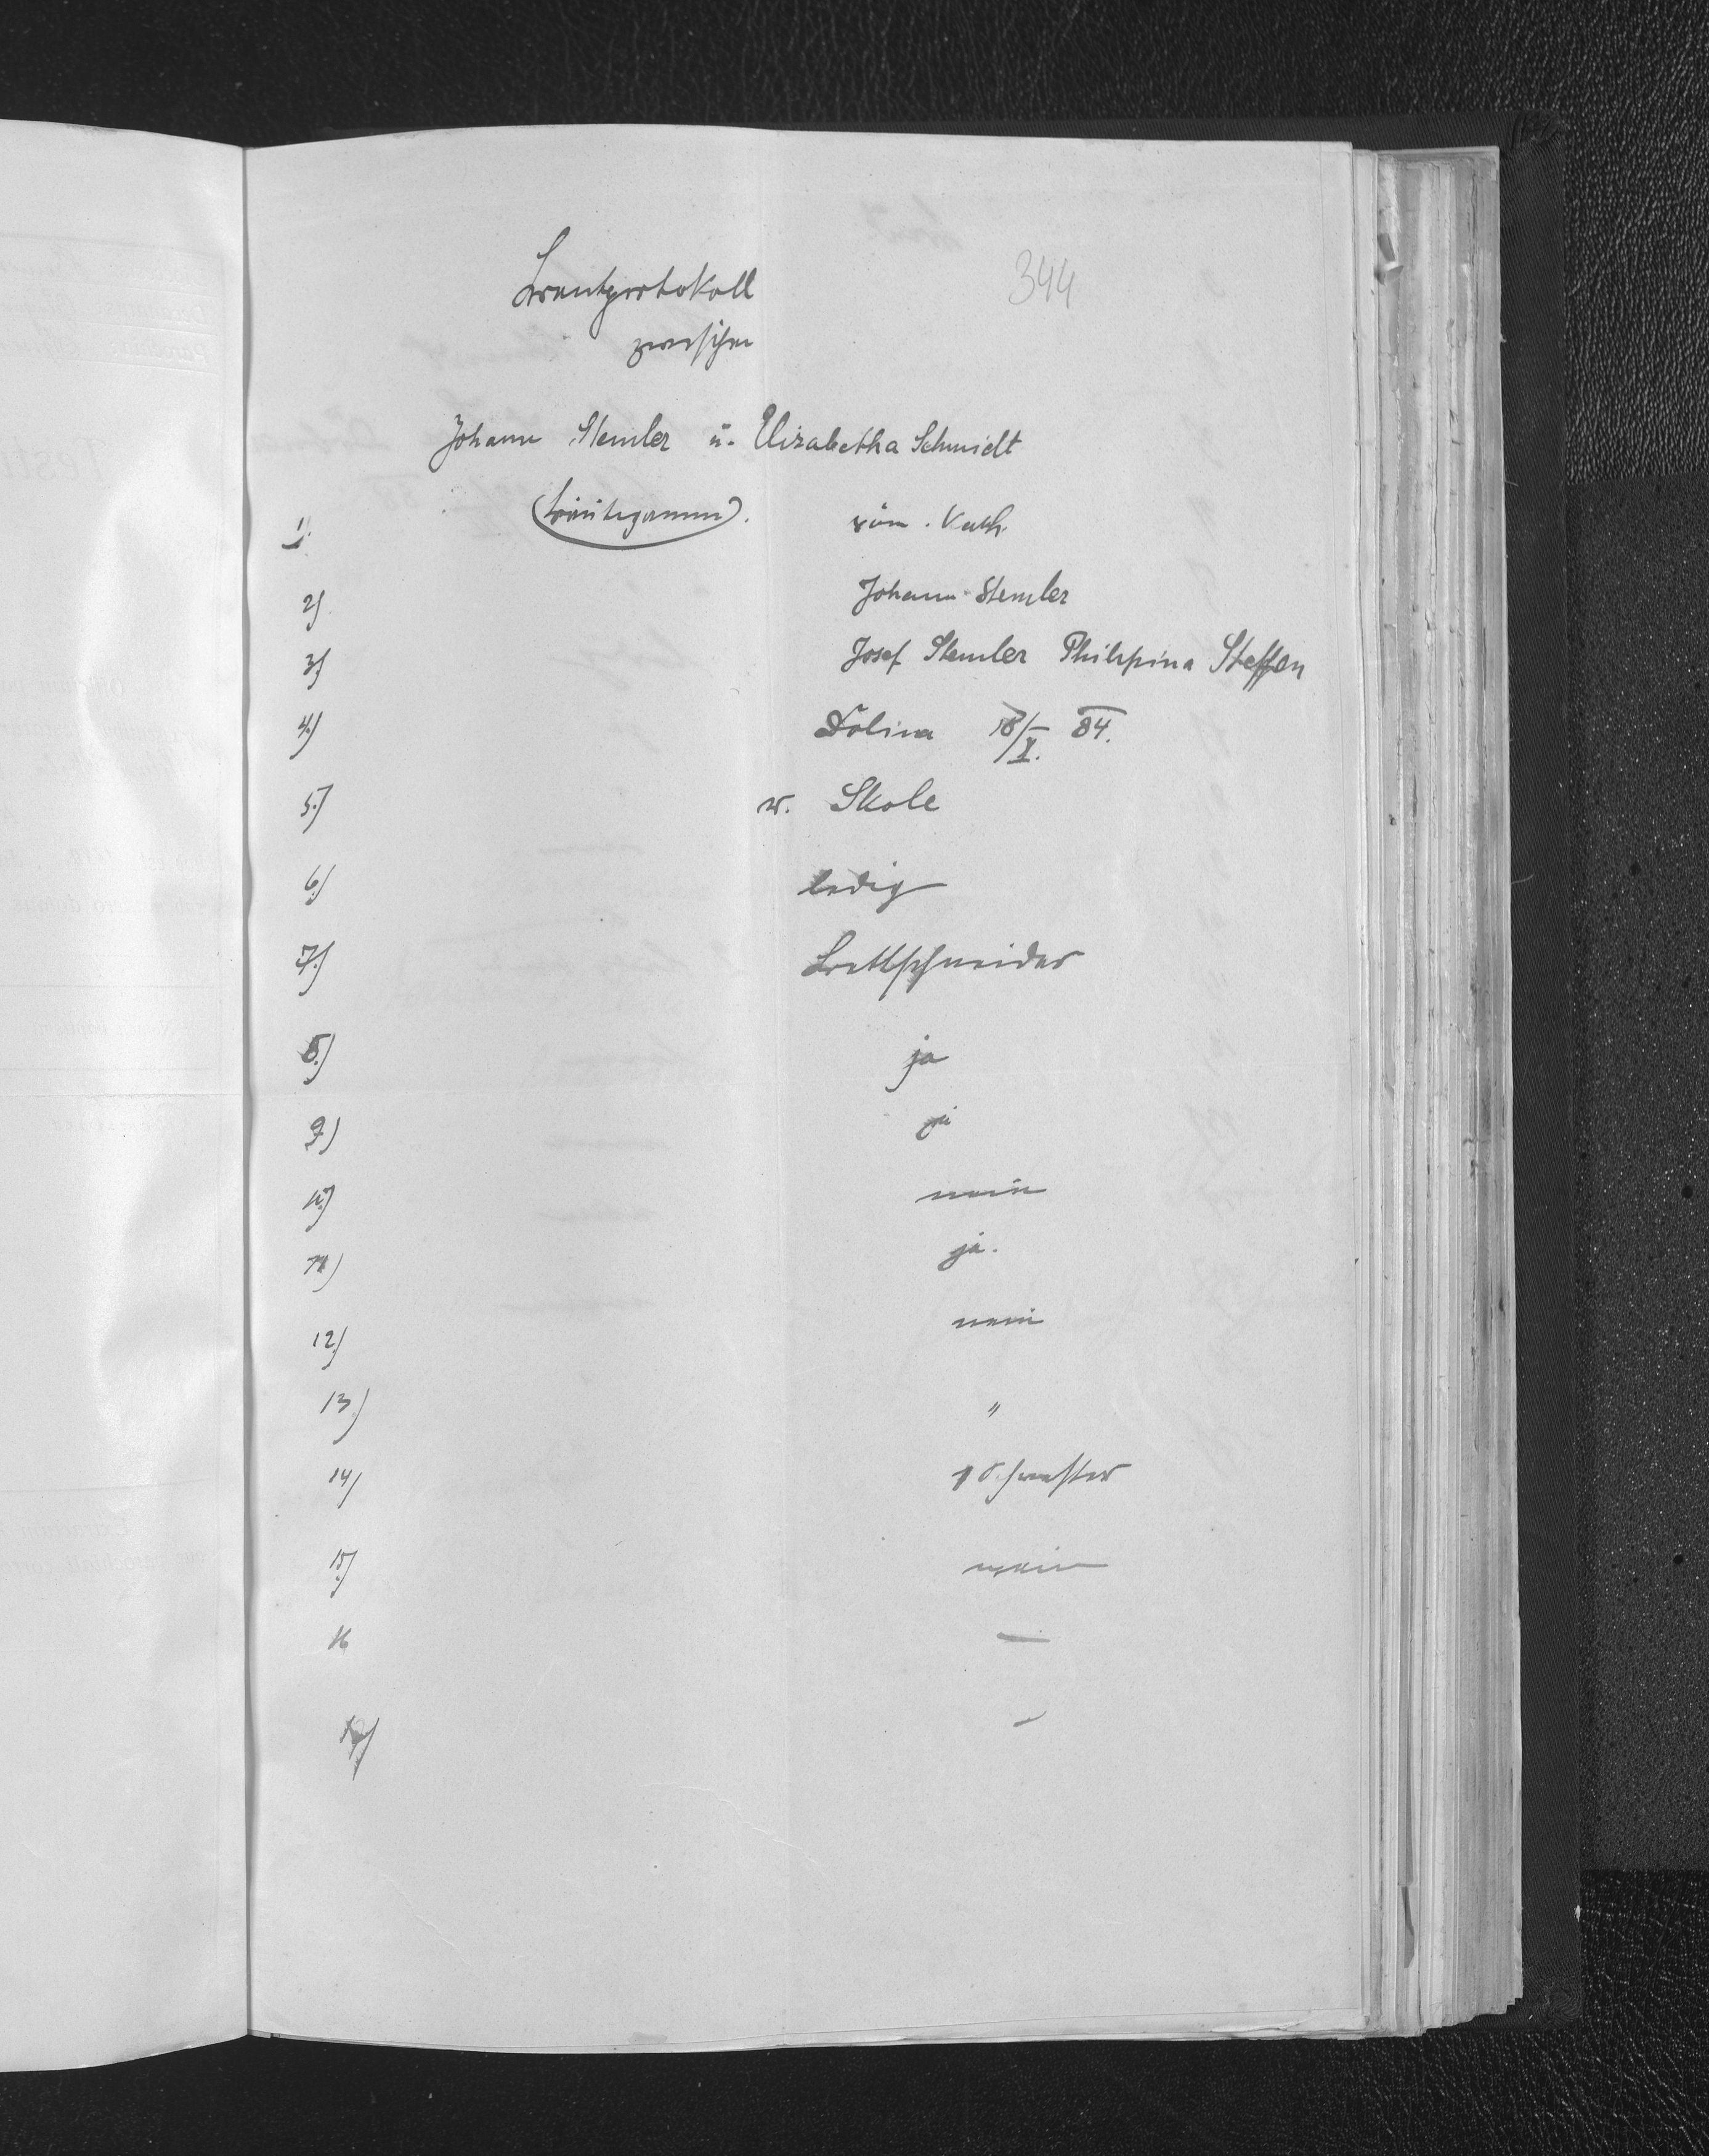 344
Brautprotokoll
zwischen
Johann Stemler u. Elisabetha Schmidt
1. (Bräutigamm). röm. Kath.
2) Johann Stemler
3) Josef Stemler Philippina Steffen
4.) Dolina 84.
5.) w. Skole
6.) ledig
7.) Brettschneider
8.) ja
9.) ja
10.) nein
11) ja.
12.) nein
13) "
14) 1 Schwester
15.) nein
16 —
17) –